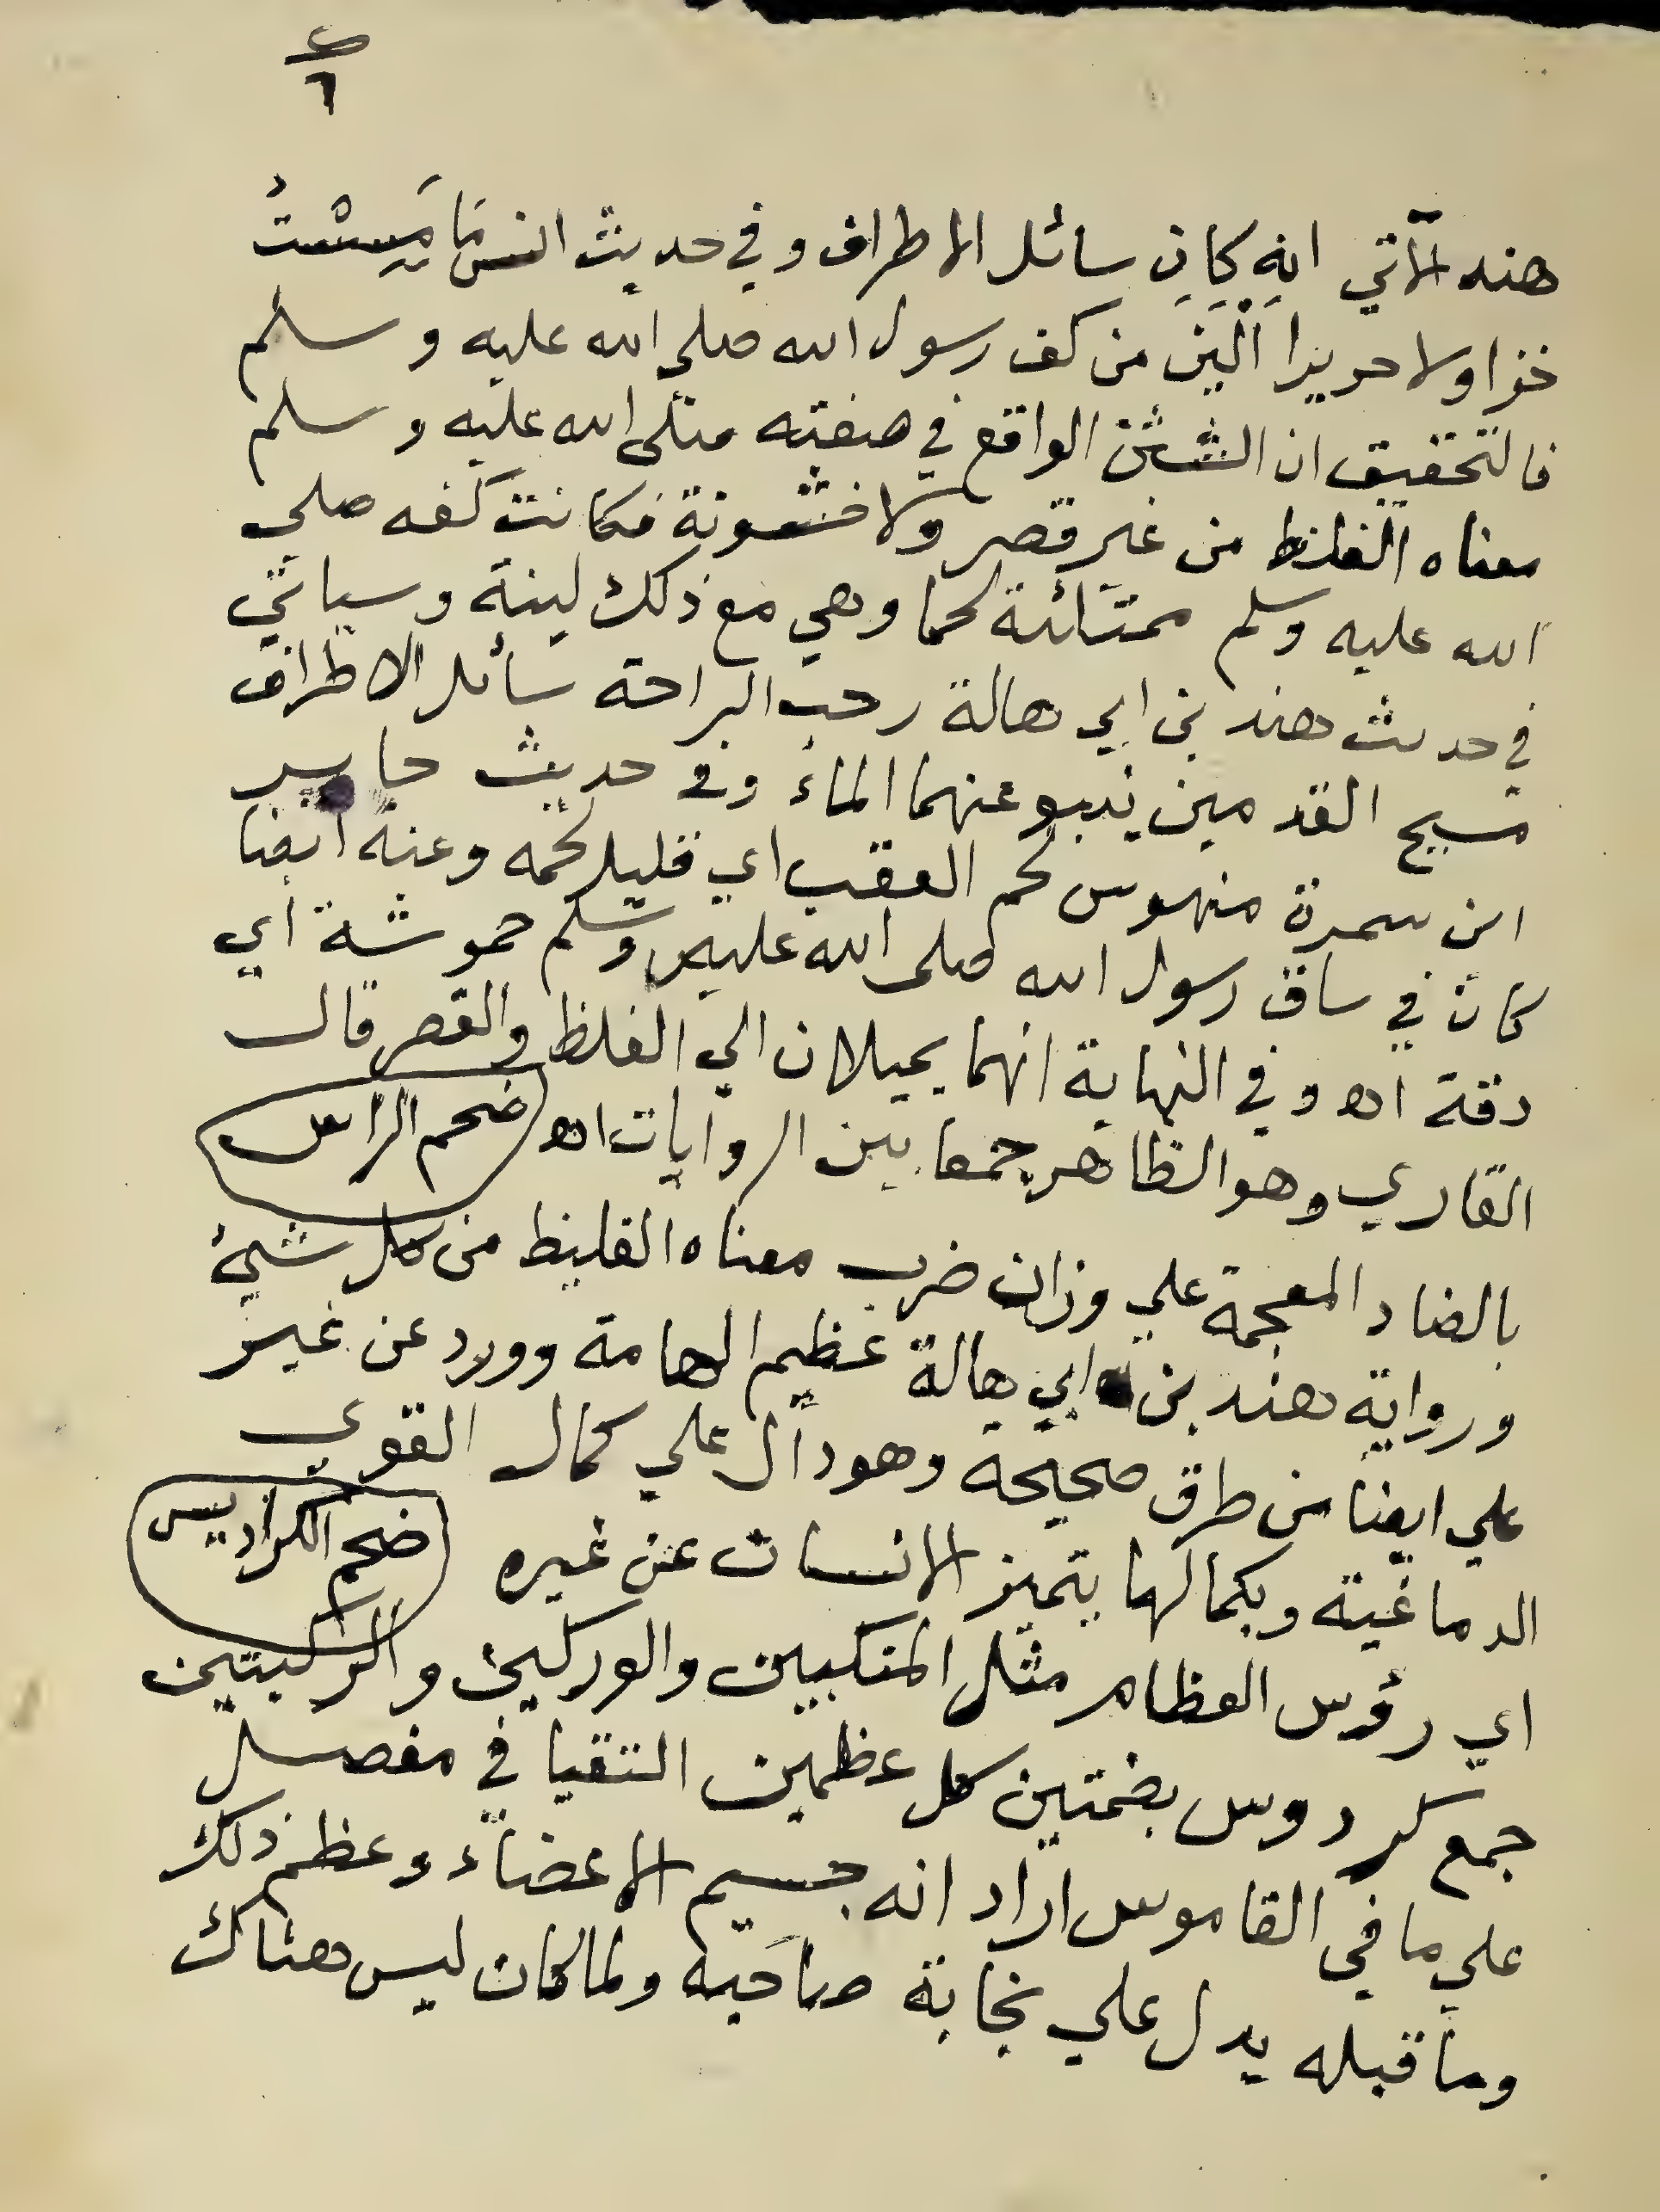 ٦
هند الآتي انه كان سائل الاطراف وفي حديث انس مَا مَسِسْتُ
خزا ولا حريرا اَلْيَنَ من كف رسول الله صلى الله عليه وسلم
فالتحقيق ان الشثن الواقع في صفته صلى الله عليه وسلم
معناه الغلظ من غير قصر ولا خشونة فكانت كفه صلي
الله عليه وسلم ممتلئة لحما وهي مع ذلك لينة وسياتي
في حديث هند بن ابي هالة رحب الراحة سائل الاطراف
مسيح القدمين ينبو عنهما الماء وفي حديث جابر
ابن سمرة منهوس لحم العقب اي قليل لحمه وعنه ايضا
كان في ساق رسول الله صلى الله عليه وسلم حموشة أي
دقة اه وفي النهاية انهما يميلان الي الغلظ والقصر قال
القاري وهو الظاهر جمعا بين الروايات اه ضخم الراس
بالضاد المعجمة علي وزان ضرب معناه الغليظ من كل شيئ
ورواية هند بن ابي هالة عظيم الهامة وورد عن غير
علي ايضا من طرق صحيحة وهو دال علي كمال القوي
الدماغية وبكمالها يتميز الانسان عن غيره ضخم الكراديس
اي رؤس العظام مثل المنكبين والوركين والركبتين
جمع كردوس بضمتين كل عظمين التقيا في مفصل
علي ما في القاموس اراد انه جسيم الاعضاء وعظم ذلك
وما قبله يدل علي نجابة صاحبه ولما كان ليس هناك